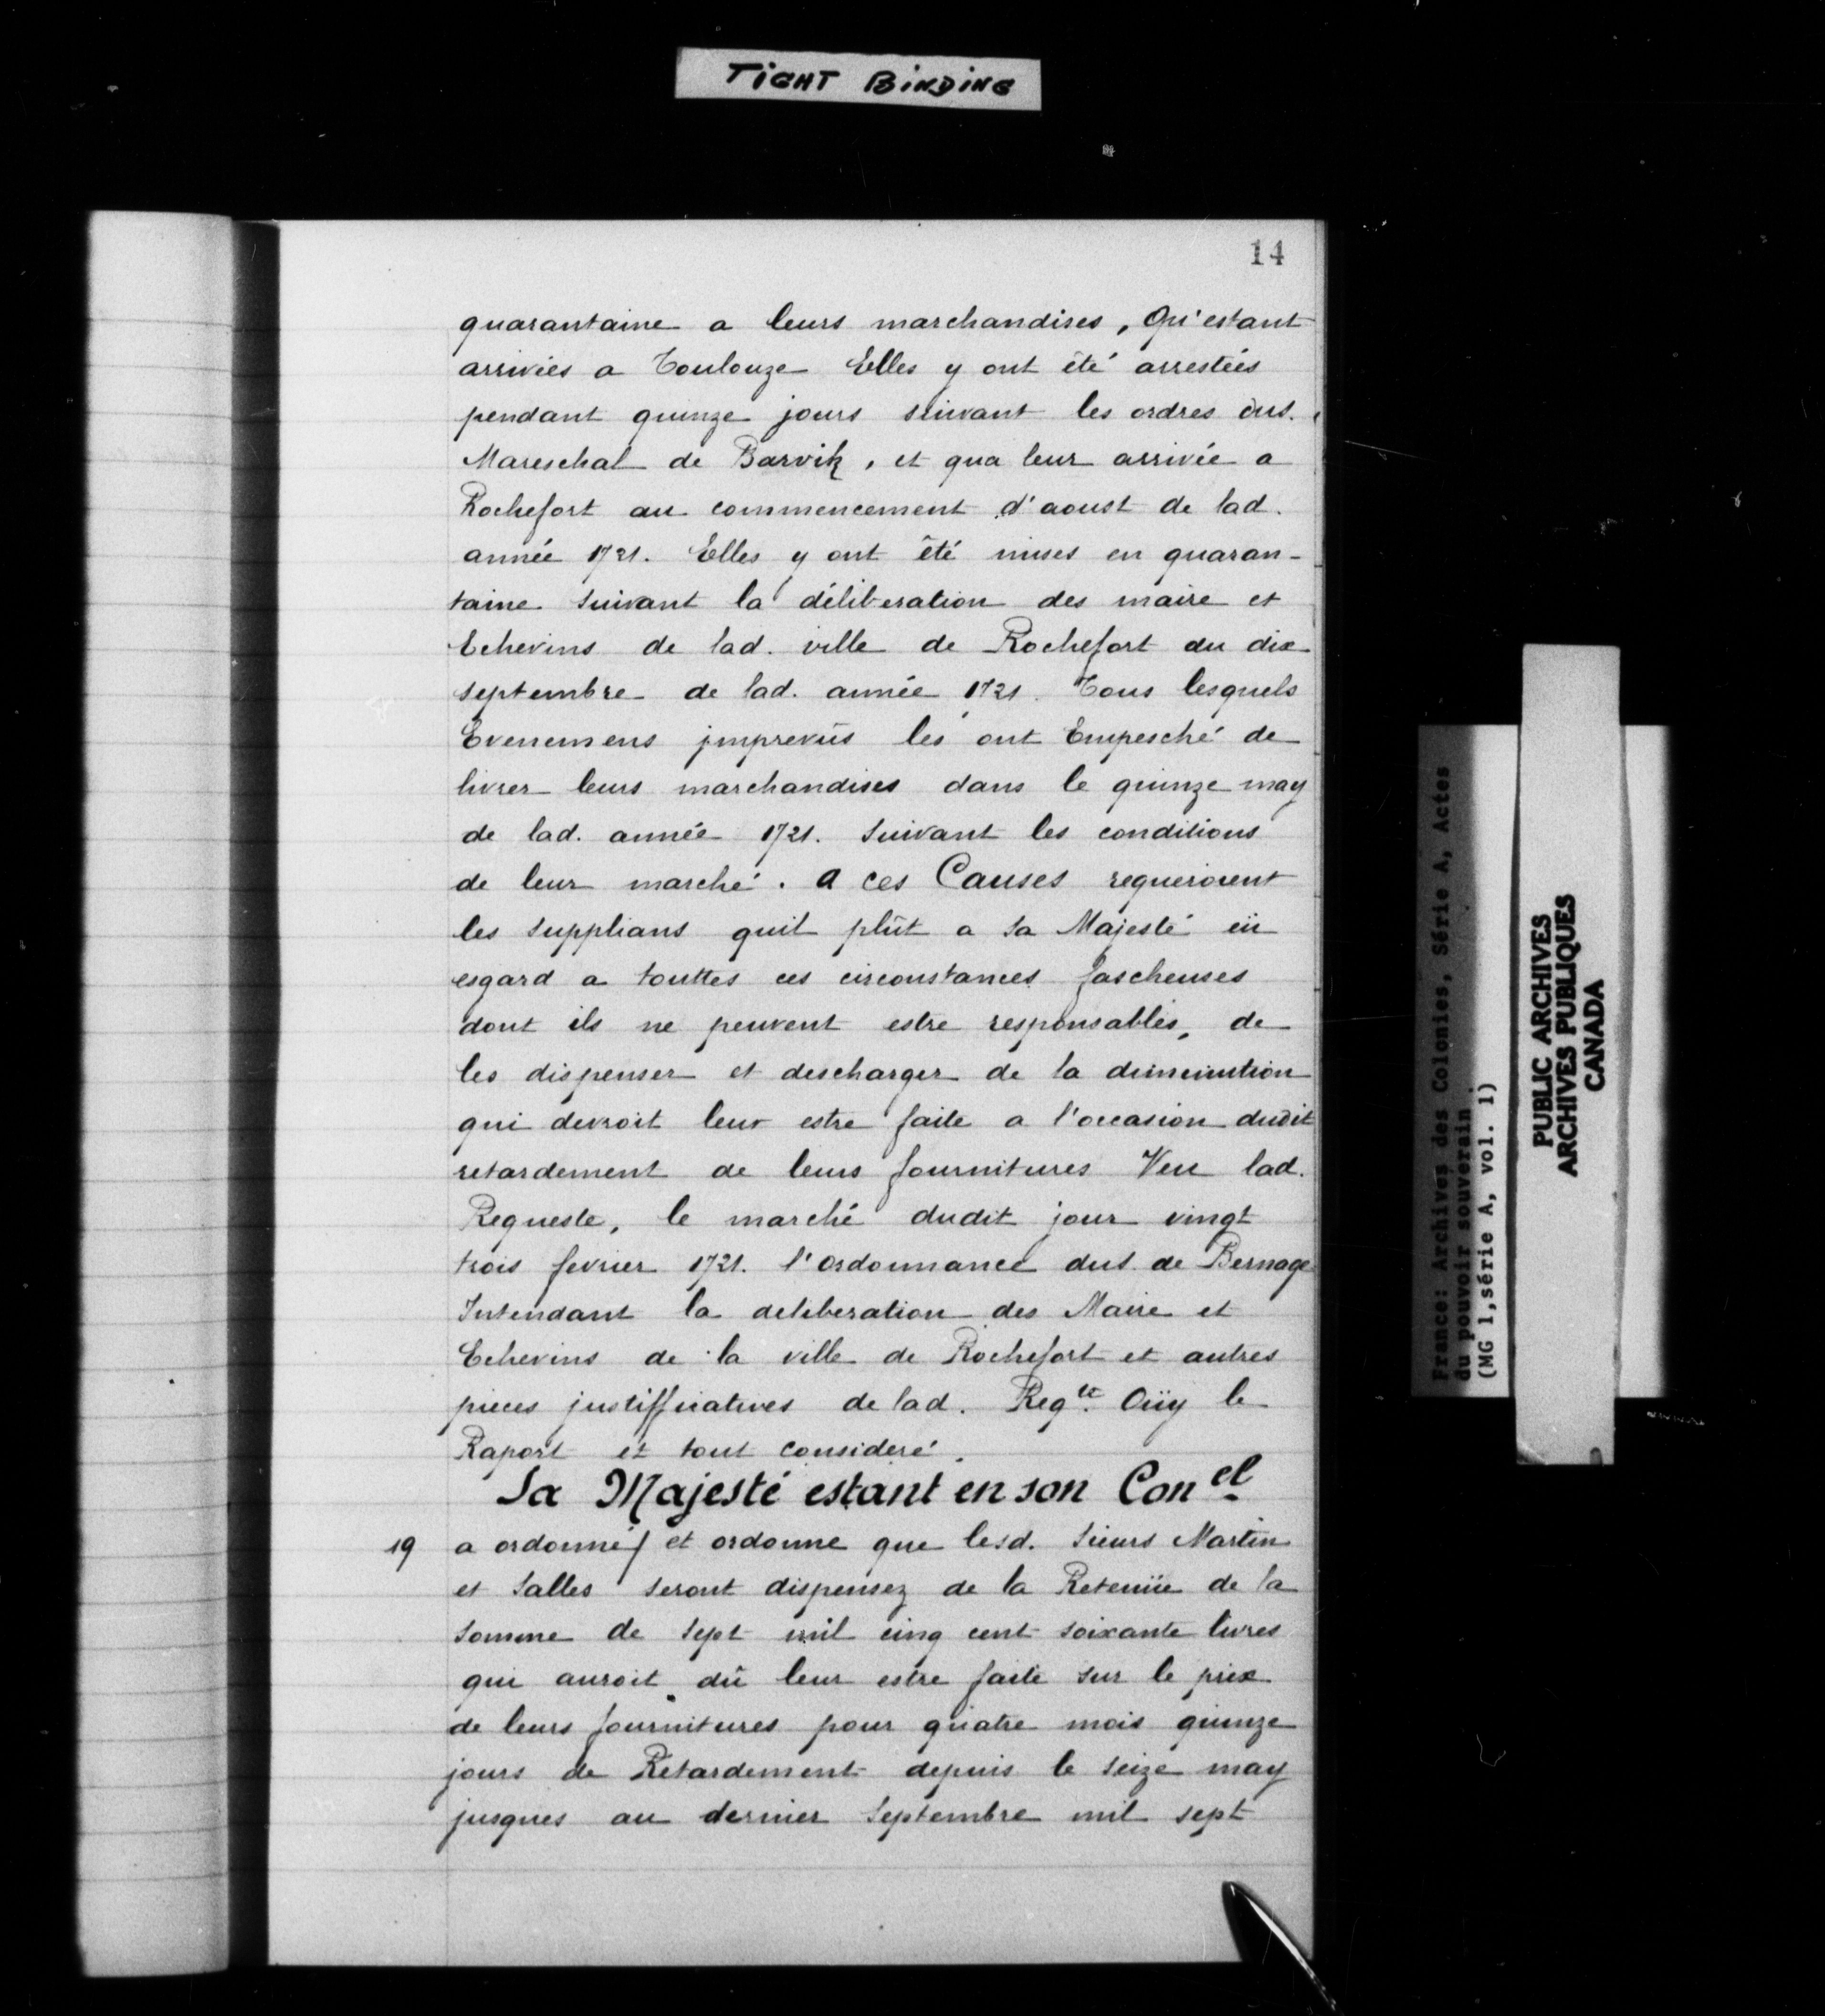 TIGHT BINDING
14
quarantaine a leurs marchandises, Qu'estant
arrivées a Toulouze Elles y ont été arrestées
pendant quinze jours suivant les ordres dus.
Mareschal de Barvik, et qua leur arrivée a
Rochefort au commencement d'aoust de lad.
année 1721. Elles y ont été mises en quaran-
taine suivant la déliberation des maire et
Echevins de lad. ville de Rochefort du dix
septembre de lad. année 1721. Tous lesquels
Evenemens jmprevûs les ont Empesché de
livrer leurs marchandises dans le quinze may
de lad. année 1721. suivant les conditions
de leur marché. a ces Causes requeroient
les supplians quil plût a sa Majesté eü
esgard a touttes ces circonstances fascheuses
dont ils ne peuvent estre responsables, de
les dispenser et descharger de la diminution
qui devroit leur estre faite a l'occasion dudit
retardement de leurs fournitures Veu lad.
Requeste, le marché dudit jour vingt
trois fevrier 1721. l'ordonnance dus. de Bernage
Intendant la deliberation des Maire et
Echevins de la ville de Rochefort et autres
pieces justifficatives de lad. Reqte. Oüy le
Raport et tout consideré.
Sa Majesté estant en son Conel
19 a ordonné et ordonne que lesd. Sieurs Martin
et Salles seront dispensez de la Retenüe de la
somme de sept mil cinq cent soixante livres
qui auroit dû leur estre faite sur le prix
de leurs fournitures pour quatre mois quinze
jours de Retardement depuis le seize may
jusques au dernier septembre mil sept
France: Archives des Colonies, Série A, Actes
du pouvoir souverain
(MG 1,série A, vol. 1)
PUBLIC ARCHIVES
ARCHIVES PUBLIQUES
CANADA